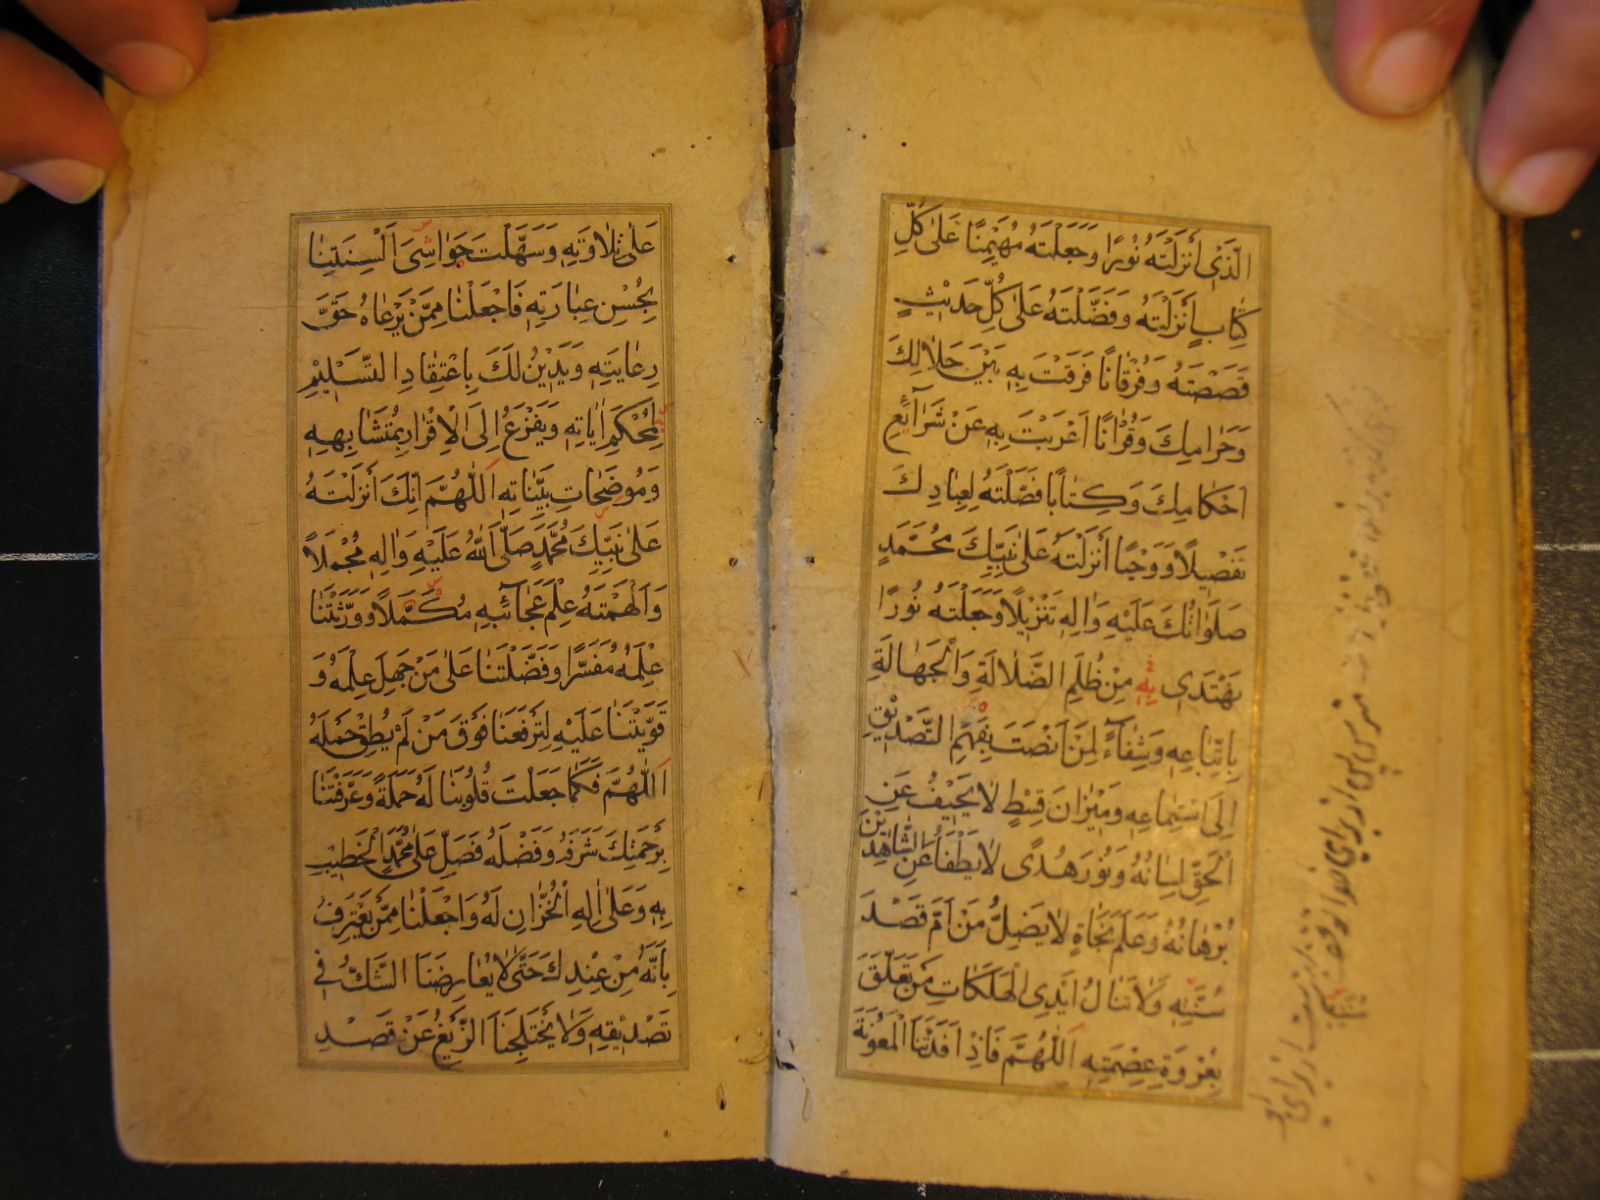 الَّذِي أَنْزَلْتَهُ نُورًا وَجَعَلْتَهُ مُهَيْمِنًا عَلَى كُلِّ
كِتَابٍ أَنْزَلْتَهُ وَفَضَّلْتَهُ عَلَى كُلِّ حَدِيثٍ
قَصَصْتَهُ وَفُرْقَانًا فَرَقْتَ بِهِ بَيْنَ حَلَالِكَ
وَحَرَامِكَ وَقُرْآنًا اَعْرَبْتَ بِهِ عَنْ شَرَائِعِ
اَحْكَامِكَ وَكِتَابًا فَصَّلْتَهُ لِعِبَادِكَ
تَفْصِيلًا وَوَحْيًا أَنْزَلْتَهُ عَلَى نَبِيِّكَ مُحَمَّدٍ
صَلَوَاتُكَ عَلَيْهِ وَالِهِ تَنْزِيلًا وَجَعَلْتَهُ نُورًا
يَهْتَدِي بِهِ مِنْ ظُلَمِ الضَّلَالَةِ وَالْجَهَالَةِ
بِاتِّبَاعِهِ وَشِفَآءً لِمَنْ اَنْصَتَ بِفَهْمِ التَّصْدِيقِ
اِلَى اسْتِمَاعِهِ وَمِيزَانَ قِسْطٍ لَا يَحِيفُ عَنِ
الْحَقِّ لِسَانُهُ وَنُورَ هُدًى لَا يَطْفَأُ عَنِ الشَّاهِدِينَ
بُرْهَانُهُ وَعَلَمَ نَجَاةٍ لَا يَضِلُّ مَنْ اَمَّ قَصْدَ
سُنَّتِهِ وَلَا تَنَالُ اَيْدِي الْهَلَكَاتِ مَنْ تَعَلَّقَ
بِعُرْوَةِ عِصْمَتِهِ اَللّٰهُمَّ فَاِذْ اَفَدْتَنَا الْمَعُونَةَ
عَلَى تِلَاوَتِهِ وَسَهَّلْتَ حَوَاشِيَ اَلْسِنَتِنَا
بِحُسْنِ عِبَارَتِهِ فَاجْعَلْنَا مِمَّنْ يَرْعَاهُ حَقَّ
رِعَايَتِهِ وَيَدِينُ لَكَ بِاعْتِقَادِ التَّسْلِيمِ
لِمُحْكَمِ اٰيَاتِهِ وَيَفْزَعُ اِلَى الْاِقْرَارِ بِمُتَشَابِهِهِ
وَمُوضَحَاتِ بَيِّنَاتِهِ اَللّٰهُمَّ اِنَّكَ أَنْزَلْتَهُ
عَلَى نَبِيِّكَ مُحَمَّدٍ صَلَّى اللّٰهُ عَلَيْهِ وَالِهِ مُجْمَلًا
وَاَلْهَمْتَهُ عِلْمَ عَجَآئِبِهِ مُكَمَّلًا وَوَرَّثْتَنَا
عِلْمَهُ مُفَسَّرًا وَفَضَّلْتَنَا عَلَى مَنْ جَهِلَ عِلْمَهُ وَ
قَوَّيْتَنَا عَلَيْهِ لِتَرْفَعَنَا فَوْقَ مَنْ لَمْ يُطِقْ حَمْلَهُ
اَللّٰهُمَّ فَكَمَا جَعَلْتَ قُلُوبَنَا لَهُ حَمَلَةً وَعَرَّفْتَنَا
بِرَحْمَتِكَ شَرَفَهُ وَفَضْلَهُ فَصَلِّ عَلَى مُحَمَّدٍ الْخَطِيبِ
بِهِ وَعَلَى اٰلِهِ الْخُزَّانِ لَهُ وَاجْعَلْنَا مِمَّنْ يَعْتَرِفُ
بِاَنَّهُ مِنْ عِنْدِكَ حَتَّى لَا يُعَارِضَنَا الشَّكُّ فِي
تَصْدِيقِهِ وَلَا يَخْتَلِجَنَا الزَّيْغُ عَنْ قَصْدِ